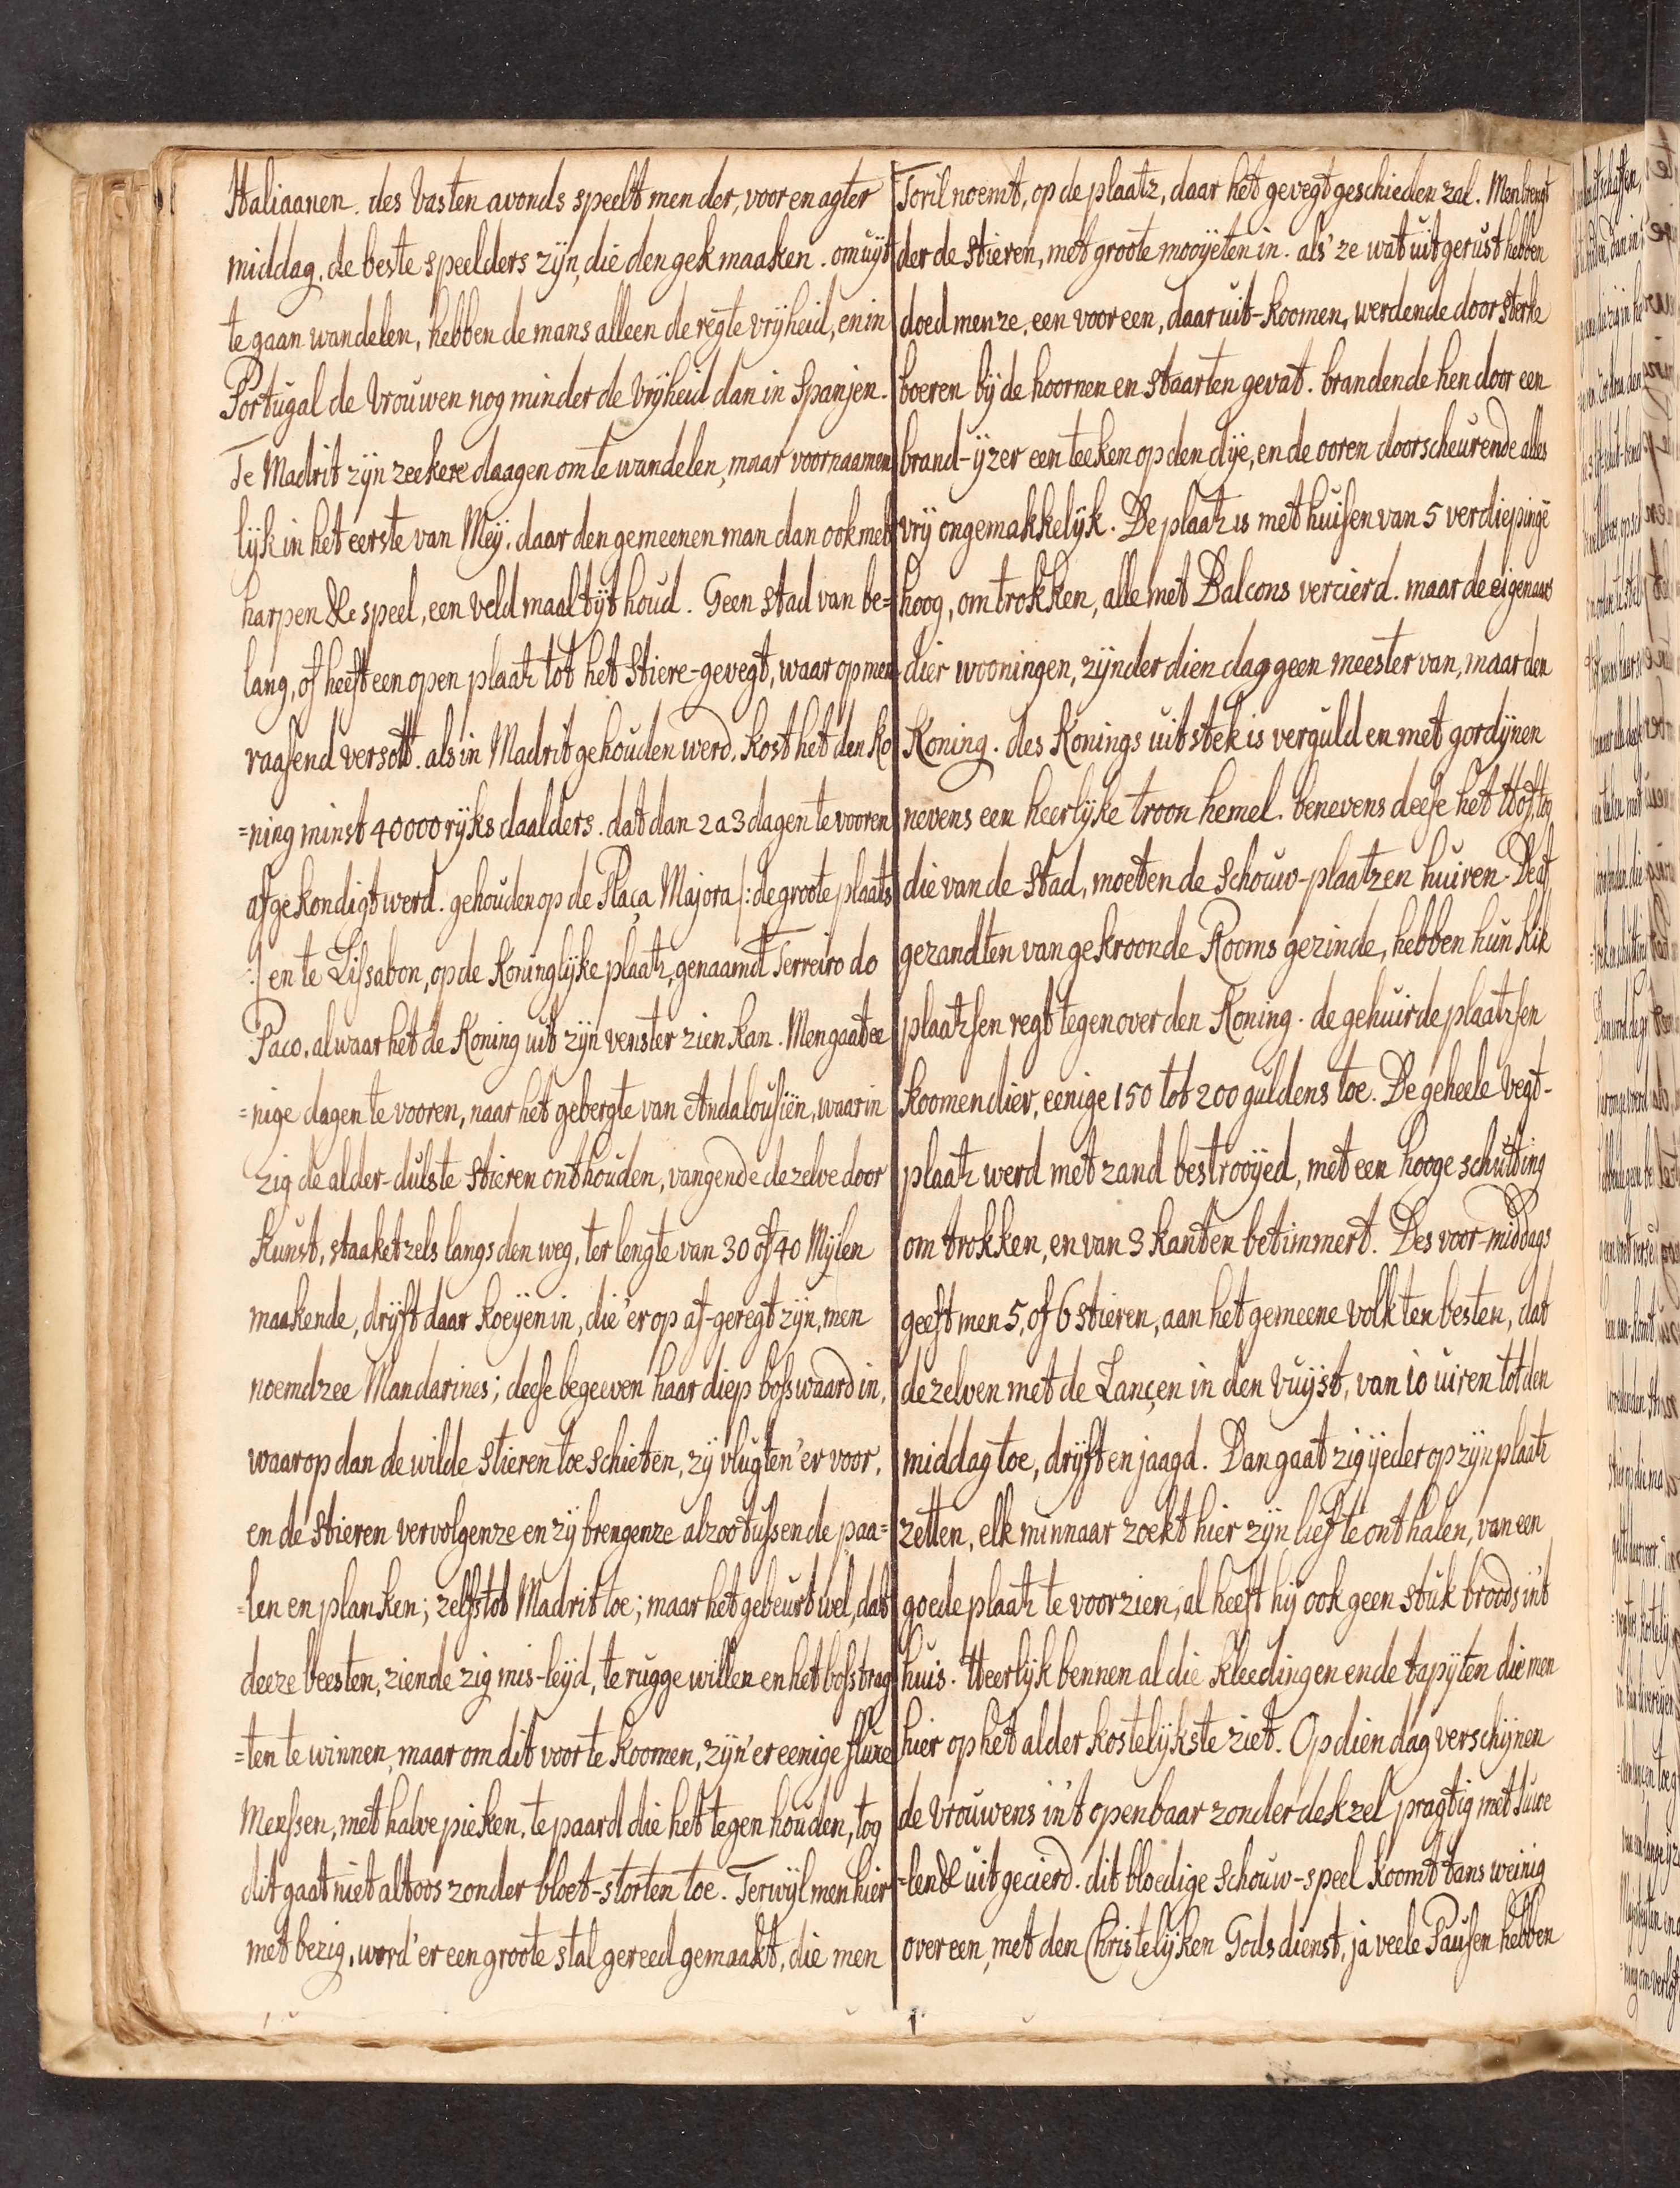 Italiaanen. des vasten avonds speelt men der, voor en agter
middag. de beste speelders zijn, die den gek maaken. om uijt
te gaan wandelen, hebben de mans alleen de regte vrijheid, en in
Portugal de Vrouwen nog minder de vrijheid dan in Spanjen.
Te Madrit zijn zeekere daagen om te wandelen, maar voornaamen
lijk in het eerste van Meij. daar den gemeenen man dan ook met
harpen &c speel, een veld maaltijt houd. Geen stad van be=
lang, of heeft een open plaatz tot het Stiere-gevegt, waar op men
raasend versott. als in Madrit gehouden werd. kost het den Ko
=ning minst 40000 rijks daalders. dat dan 2 a 3 dagen te vooren
afgekondigt werd. gehouden op de Plaça Majora /: de groote plaats
:/ en te Lissabon, op de Koninglijke plaatz, genaamt Terreiro do
Paco. alwaar het de Koning uit zijn venster zien kan. Men gaat ee
=nige dagen te vooren, naar het gebergte van Andalousiën, waar in
zig de alder-dulste stieren onthouden, vangende dezelve door
kunst, staaketzels langs den weg, ter lengte van 30 of 40 Mijlen
maakende, drijft daar koeijen in, die 'er op af-geregt zijn, men
noemdzee Mandarines; deese begeeven haar diep boswaard in,
waar op dan de wilde stieren toe schieten, zij vlugten 'er voor,
en de stieren vervolgenze en zij brengenze alzoo tussen de paa=
=len en planken; zelfs tot Madrit toe; maar het gebeurt wel, dat
deeze beesten, ziende zig mis-leijd, te rugge willen en het bos trag
=ten te winnen, maar om dit voor te koomen, zijn 'er eenige fluxe
Menssen, met halve pieken, te paard die het tegen houden, tog
dit gaat niet altoos zonder bloet-storten toe. Terwijl men hier
met bezig, word 'er een groote stal gereed gemaakt, die men
Toril noemt, op de plaatz, daar het gevegt geschieden zal. Men brengt
der de stieren, met groote mooijeten in. als' ze wat uit gerust hebben
doed men ze, een voor een, daar uit-koomen, werdende door sterke
boeren bij de hoornen en staarten gevat. brandende hen door een
brand-ijzer een teeken op den dije, en de ooren doorscheurende alles
vrij ongemakkelijk. De plaatz is met huisen van 5 verdiepinge
hoog, omtrokken, alle met Balcons vercierd. maar de eigenaars
dier wooningen, zijn der dien dag geen meester van, maar den
Koning. des Konings uitstek is verguld en met gordijnen
nevens een heerlijke troon hemel. benevens deese het Hof, tog
die van de stad, moeten de schouw-plaatzen huiren. De af
gezandten van gekroonde Rooms gezinde, hebben hun kik
plaatzsen regt tegen over den Koning. de gehuirde plaatzsen
koomen dier, eenige 150 tot 200 guldens toe. De geheele vegt-
plaatz werd met zand bestrooijed, met een hooge schutting
om trokken, en van 3 kanten betimmert. Des voor-middags
geeft men 5, of 6 stieren, aan het gemeene volk ten besten, dat
dezelven met de Lançen in den vuijst, van 10 uiren tot den
middag toe, drijft en jaagd. Dan gaat zig ijeder op zijn plaatz
zetten, elk minnaar zoekt hier zijn lief te ont halen, van een
goede plaatz te voorzien, al heeft hij ook geen stuk broods in't
huis. Heerlijk bennen al die kleedingen en de tapijten die men
hier op het alder kostelijkste ziet. Op dien dag verschijnen
de vrouwens in't openbaar zonder dekzel pragtig met Juwe
=len &c uit gecierd. dit bloedige schouw-speel koomt tans weinig
over een, met den Christelijken Gods dienst, ja veele Pausen hebben